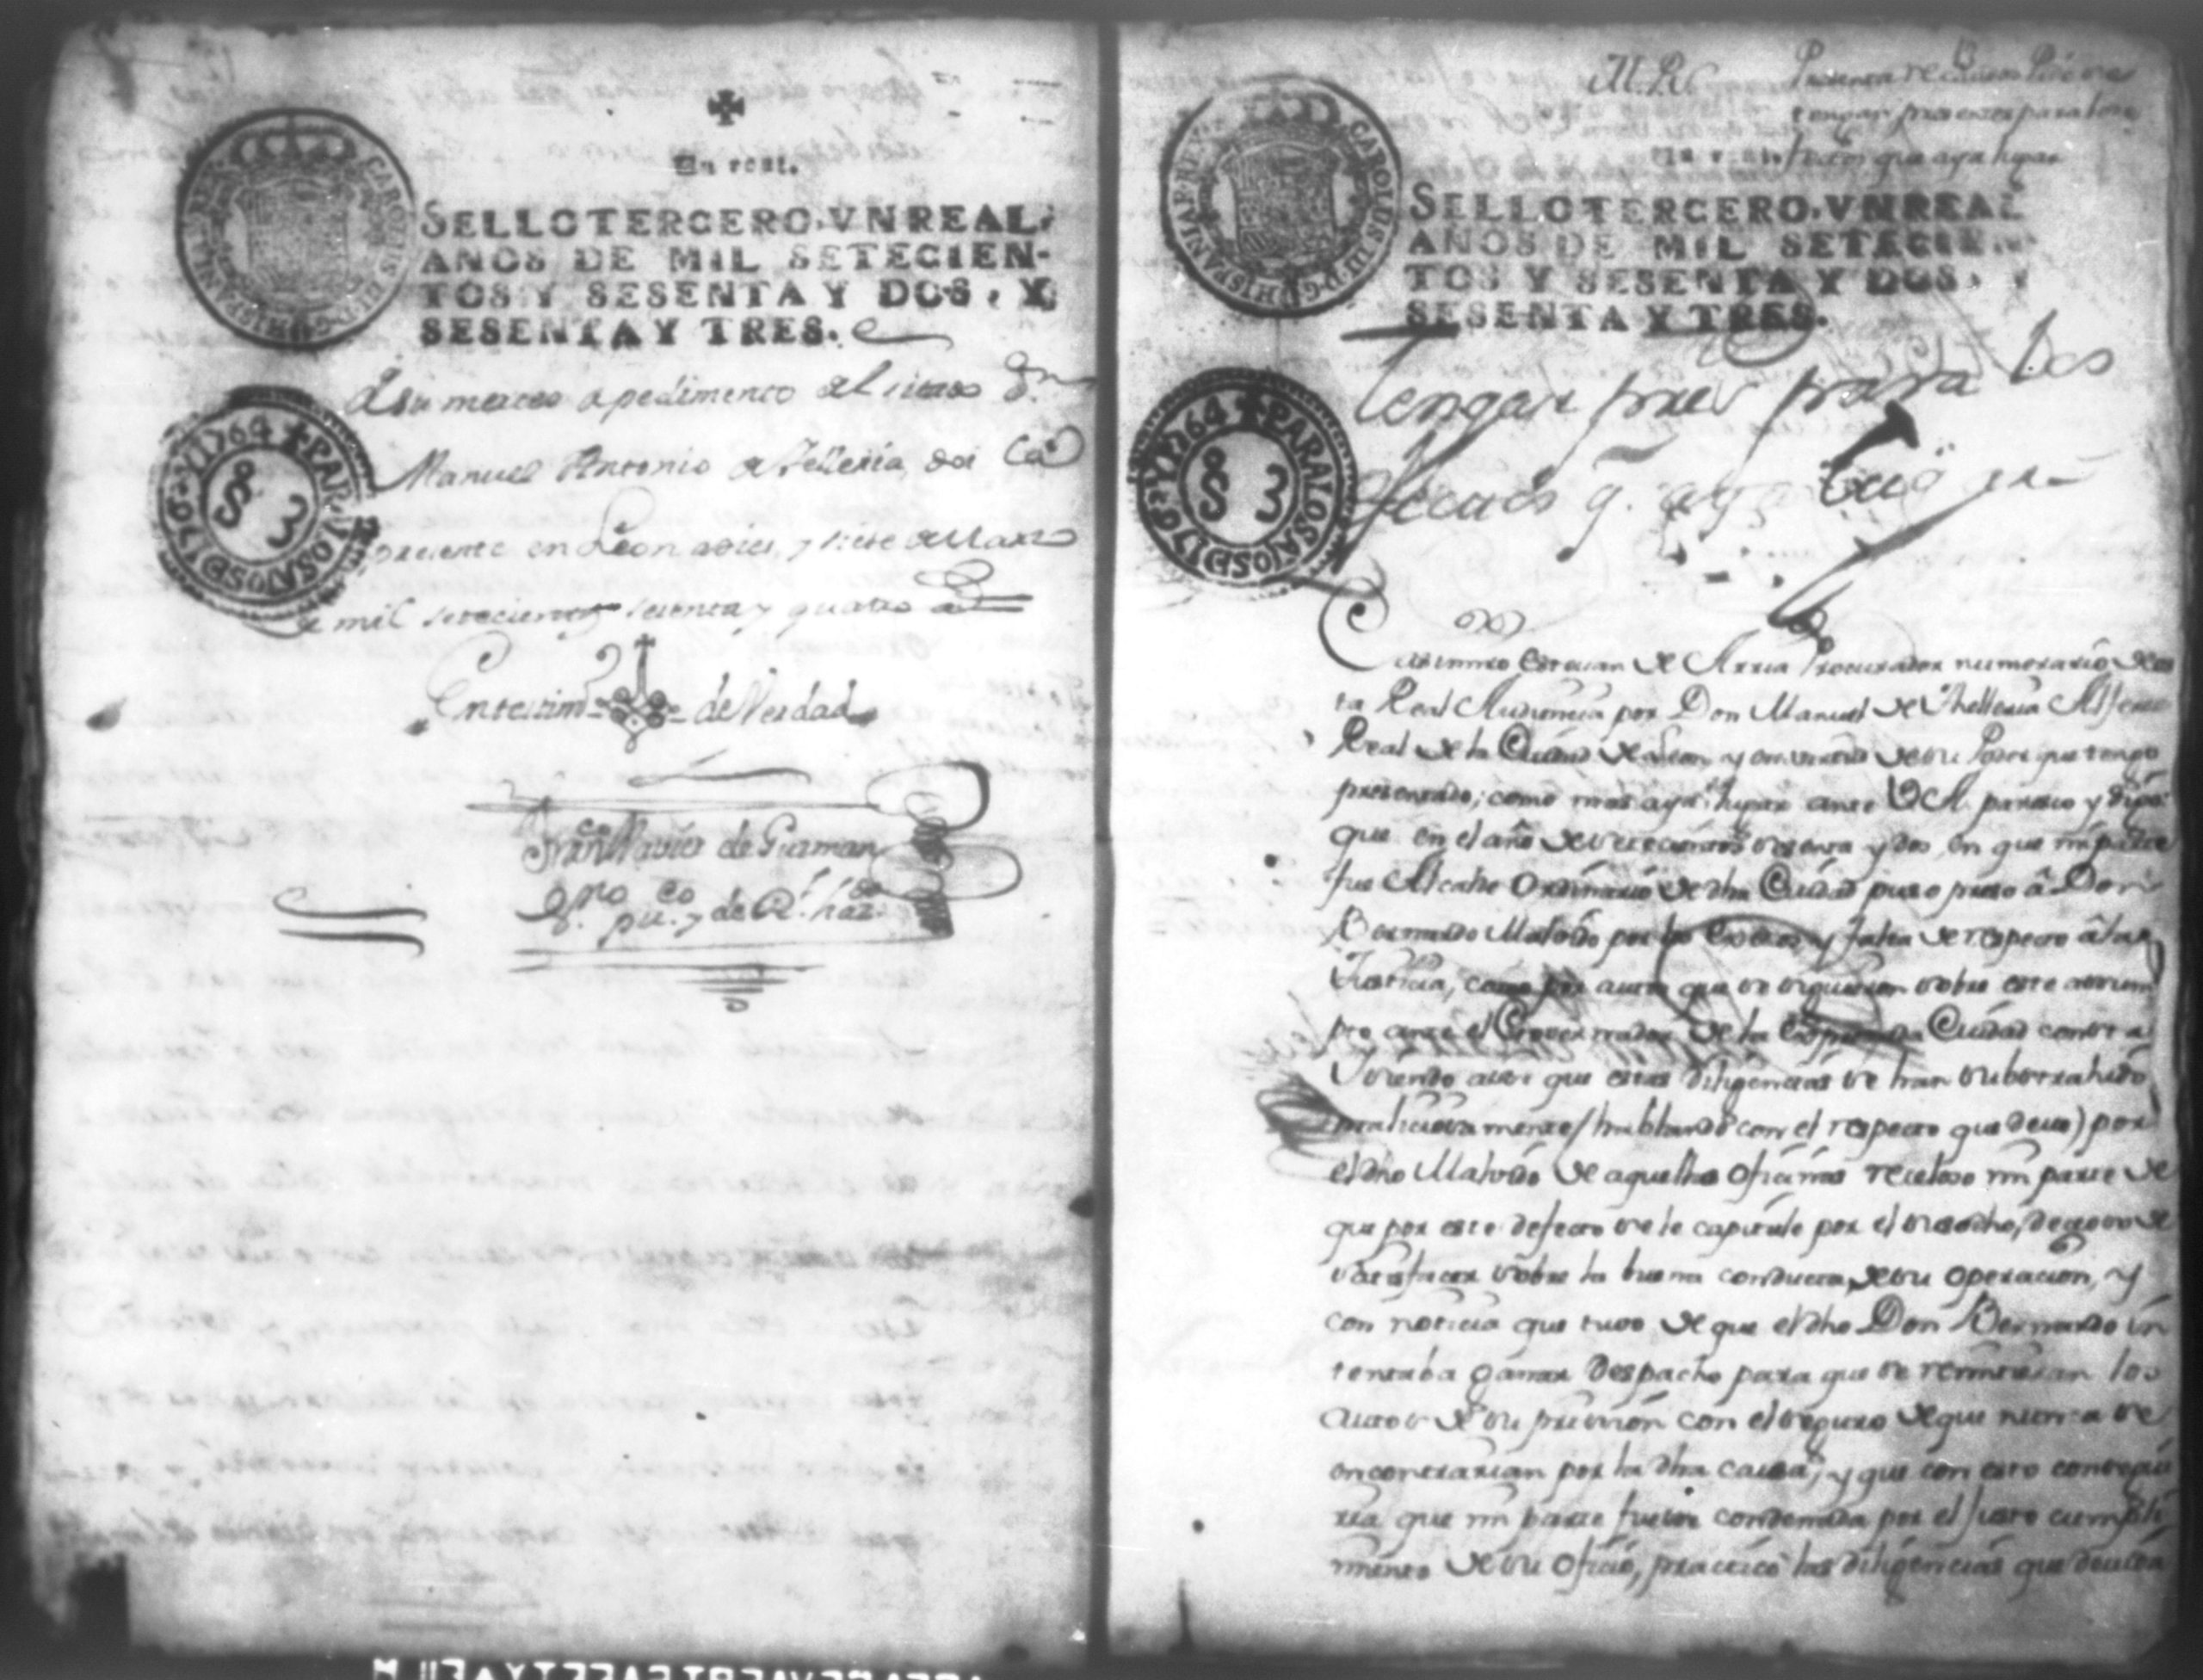 Un real.
SELLO TERCERO, VN REAL,
AÑOS DE MIL SETECIEN-
TOS Y SESENTA Y DOS, Y
SESENTA Y TRES.
CAROLUS III D G HISPANIAR REX
de su merced a pedimento del
Manuel Antonio de Telleria, doi la
presente en Leon a dies, y siete de Marzo
de mil setecientos sesenta y quatro a
PARA LOS AÑOS DE 1763 Y 1764
S 3
En testim de Verdad
Fran Xavier de Guzman
pu. y de Rl haz
M. P. S.
Presenta
tengan presentes para los
fectos que aya lugar
Un real.
SELLO TERCERO, VN REAL
AÑOS DE MIL SETECIEN
TOS Y SESENTA Y DOS, Y
SESENTA Y TRES.
CAROLUS III D G HISPANIAR REX
tengan pres para los
efectos q. aya lugar
PARA LOS AÑOS DE 1763 Y 1764
S 3
Casimiro Estevan de Arria Procurador numerario de es
ta Real Audiencia por Don Manuel de Thelleria Alferes
Real de la Ciudad de Leon, y en virtud de su Poder que tengo
presentado; como mas aya lugar ante V A paresco y digo:
que en el año de setecientos sesenta y dos, en que mi parte
fue Alcalde Ordinario de dha Ciudad puso preso â Don
Bernardo Malvido por los Excesos y falta de respecto â la
Justicia, como por autos que se siguieron sobre este asum
pto ante el Governador de la Expresada Ciudad consta
Y siendo assi que estas diligencias se han substrahido
maliciosamente (hablando con el respecto que devo) por
el dho Malvido de aquellos oficios receloso mi parte de
que por este defecto se le capitule por el suso dho, deseoso de
satisfacer sobre la buena conducta, de su operacion, y
con noticia que tuvo de que el dho Don Bernardo in
tentaba ganar Despacho para que se remitieran los
autos de su prission con el seguro de que nunca se
encontrarian por la dha causa, y que con esto consegui
ria que mi parte fuesse condenada por el justo cumpli
miento de su oficio, practicò las diligencias que